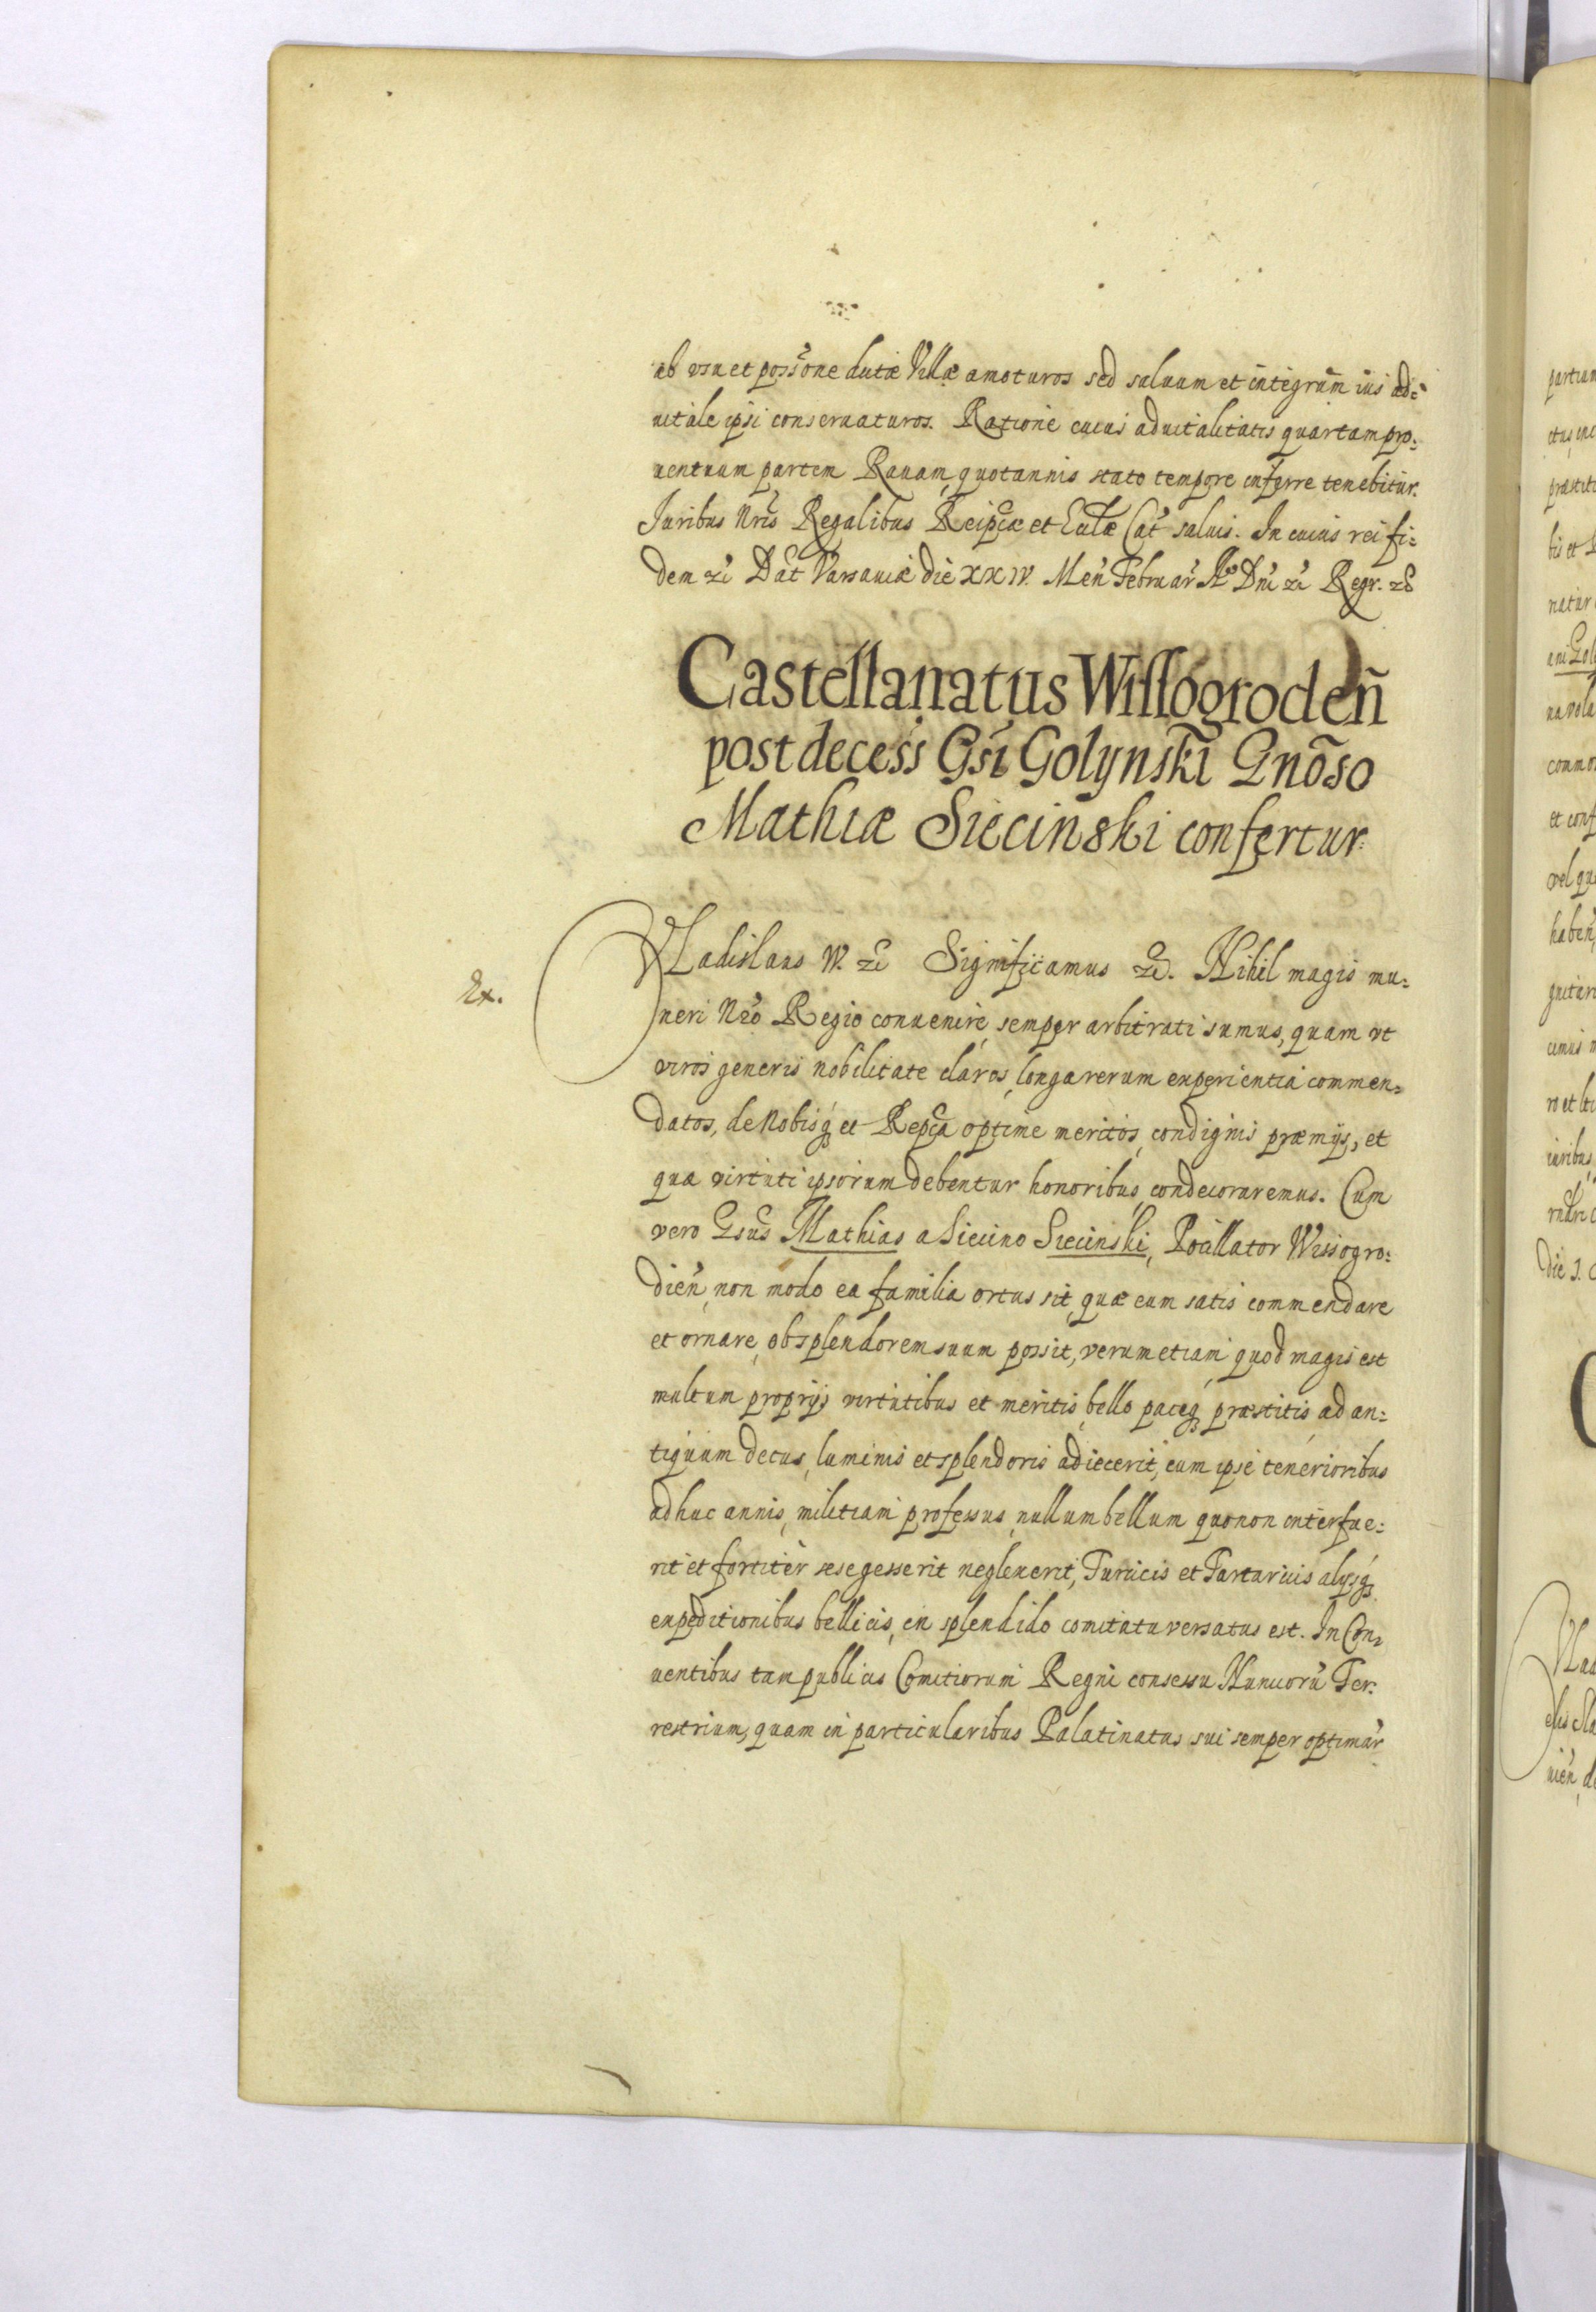 ab usu et possōne dictæ Villæ amoturos sed saluum et integrum ius ad=
uitale ipsi conseruaturos. Ratione cuius aduitalitatis quartam pro=
uentuum partem Rauam, quotannis stato tempore inferre tenebitur.
Iuribus Nris Regalibus Reipcæ et Eccłæ Cat saluis. In cuius rei fi=
dem zc Dat Varsauiæ die XXIV. Men Februar Ao Dni zc Regr. zc
Castellanatus Wissogroden̄
post decess Gsi Golynski Gnōso
Mathiæ Siecinski confertur.
Ex.
VLadislaus IV. zc Significamus zc. Nihil magis mu=
neri Nro Regio conuenire, semper arbitrati sumus, quam vt
viros generis nobilitate claros, longa rerum experientia commen=
datos, de Nobisq et Repca optime meritos, condignis præmijs, et
quæ virtuti ipsorum debentur honoribus, condecoraremus. Cum
vero Gsus Mathias a Siecino Siecinski, Pocillator Wissogro=
dien, non modo ea familia ortus sit, quæ eum satis commendare
et ornare, ob splendorem suum possit, verum etiam quod magis est
multum proprijs virtutibus et meritis, bello paceq præstitis, ad an=
tiquum decus, luminis et splendoris adiecerit, cum ipse tenerioribus
adhuc annis, militiam professus, nullum bellum quo non interfue=
rit et fortiter sese gesserit neglexerit, Turcicis et Tartaricis alijsq
expeditionibus bellicis, in splendido comitatu versatus est. In Con=
uentibus tam publicis Comitiorum Regni consessu Nunciorū Ter=
restrium, quam in particularibus Palatinatus sui semper optimar